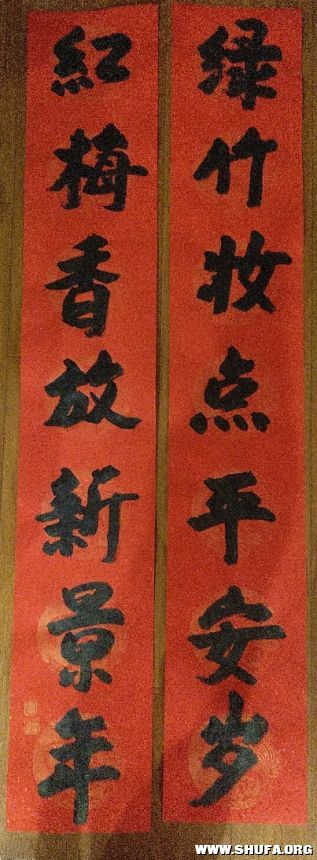 绿竹妆点平安岁
紅梅香放新景年
WWW.SHUFA.ORG